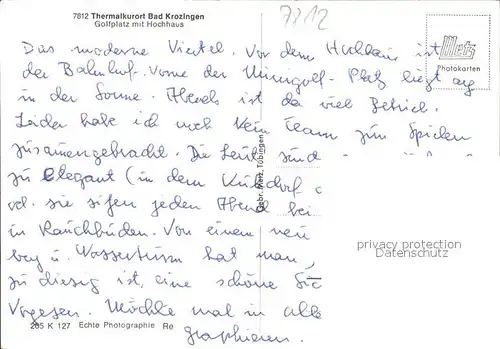 7812 Thermalkurort Bad Krozingen
Golfplatz mit Hochhaus
7812
Metz
Photokarten
Das moderne Viertel. Vor dem Hochhaus ist
der Bahnhof. Vorne der Minigolf-Platz liegt arg
in der Sonne. Abends ist da viel Betrieb.
Leider habe ich noch kein Team zum Spielen
zusammengebracht. Die Leute sind
zu elegant (in dem Kuhdorf
od. sie sitzen jeden Abend bei
in Rauchbuden. Von einem
berg u. Wasserturm hat man,
zu diesig ist, eine schöne Sic
Vogesen. Möchte mal in alle
graphieren.
Gebr. Metz, Tübingen
privacy protection
Datenschutz
265 K 127 Echte Photographie Re